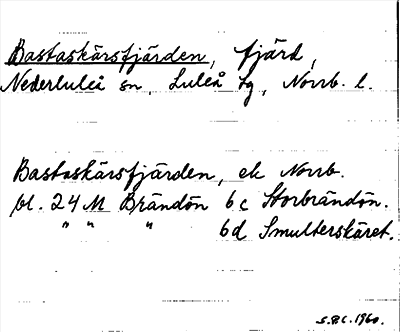 Bastaskärsfjärden, fjärd,
Nederluleå sn, Luleå tg, Norrb. l.
Bastaskärsfjärden, ek Norrb.
bl. 24 M Brändön 6c Storbrändön.
" " " 6d Smulterskäret.
S.B.C. 1960.